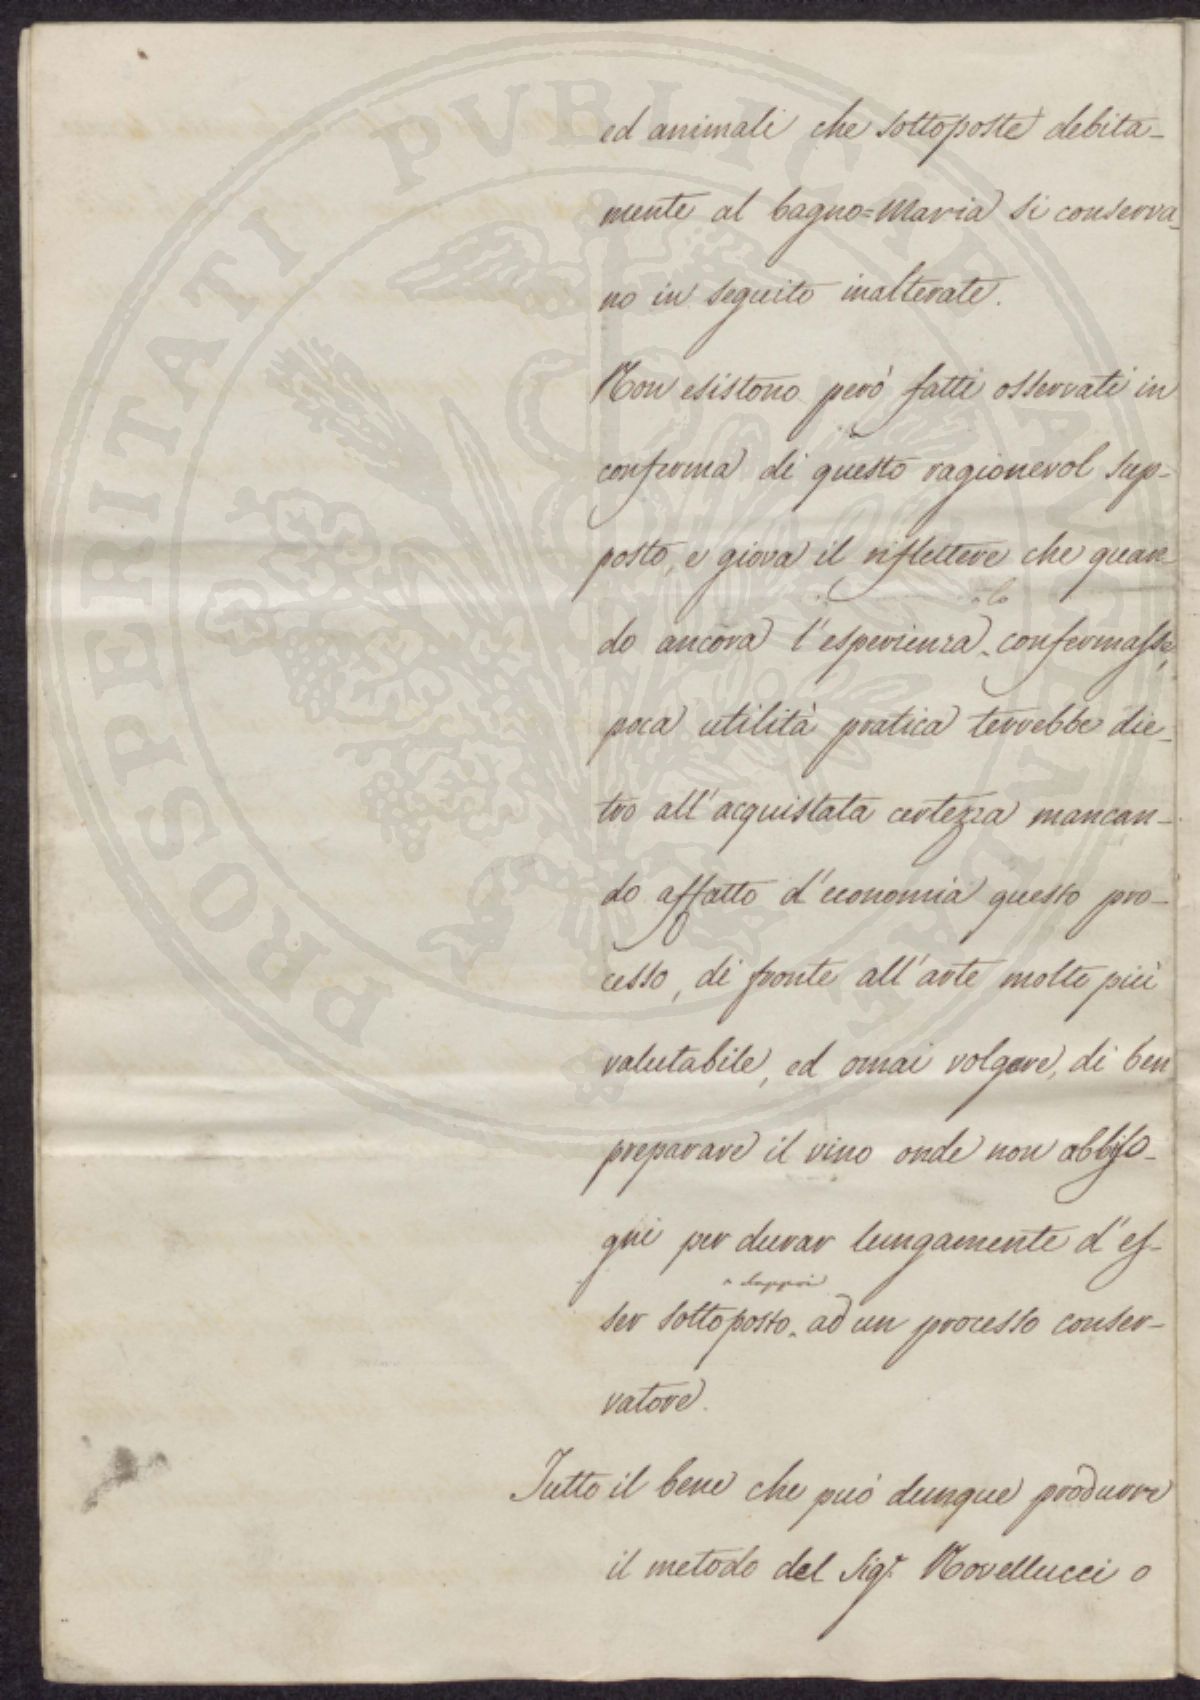 ed animali che sottoposte debita-
mente al bagno=Maria si conserva-
no in seguito inalterate.
Non esistono però fatti osservati in
conferma di questo ragionevol sup-
posto, e giova il riflettere che quan-
lo
do ancora l'esperienza confermasse,
poca utilità pratica terrebbe die-
tro all'acquistata certezza mancan-
do affatto d'economia questo pro-
cesso, di fronte all'arte molto più
valutabile, ed omai volgare, di ben
preparare il vino onde non abbiso-
gni per durar lungamente d'es-
dappoi
ser sottoposto ad un processo conser-
vatore.
Tutto il bene che può dunque produrre
il metodo del Sigr. Novellucci o
PROSPERITATI PVBLICAE AVGENDAE